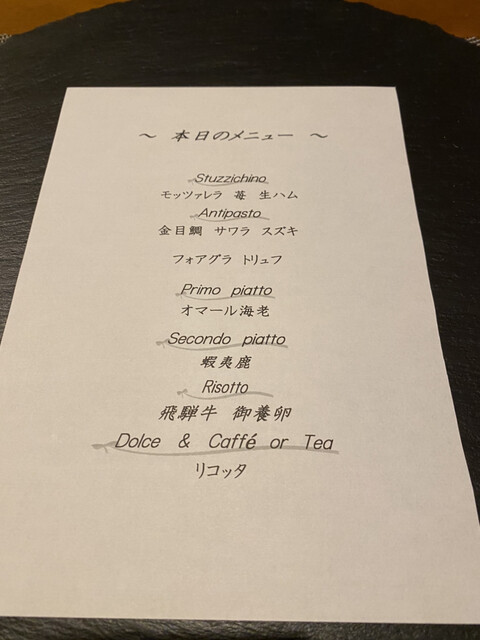 ～ 本日のメニュー ～
Stuzzichino
モッツァレラ 苺 生ハム
Antipasto
金目鯛 サワラ スズキ
フォアグラ トリュフ
Primo piatto
オマール海老
Secondo piatto
蝦夷鹿
Risotto
飛騨牛 御養卵
Dolce & Caffé or Tea
リコッタ